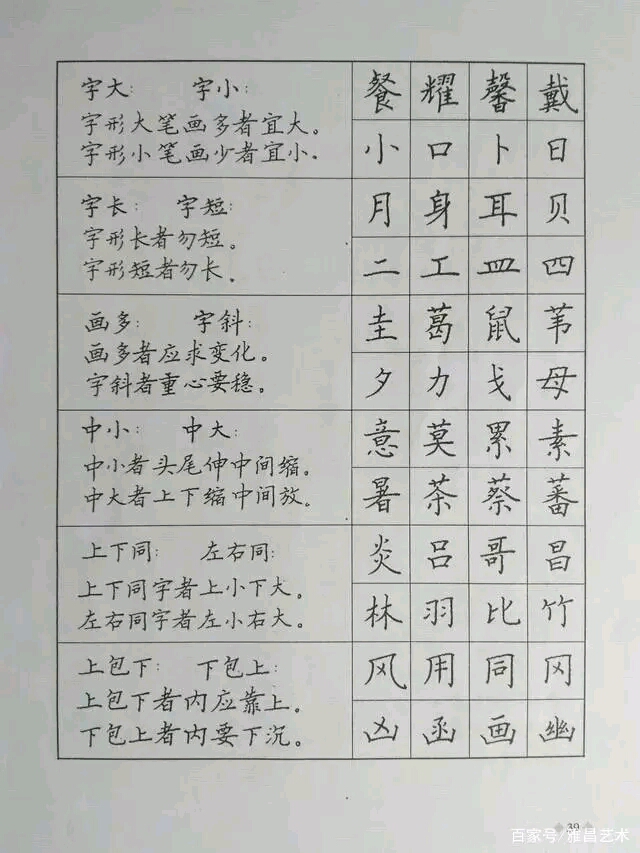 字大：　字小：
字形大笔画多者宜大。
字形小笔画少者宜小。
餐 耀 馨 戴
小 口 卜 日
字长：　字短：
字形长者勿短。
字形短者勿长。
月 身 耳 贝
二 工 皿 四
画多：　字斜：
画多者应求变化。
字斜者重心要稳。
圭 葛 鼠 苇
夕 力 戈 母
中小：　中大：
中小者头尾伸中间缩。
中大者上下缩中间放。
意 莫 累 素
暑 茶 蔡 蕃
上下同：　左右同：
上下同字者上小下大。
左右同字者左小右大。
炎 吕 哥 昌
林 羽 比 竹
上包下：　下包上：
上包下者内应靠上。
下包上者内要下沉。
风 用 同 冈
凶 函 画 幽
39
百家号/雅昌艺术